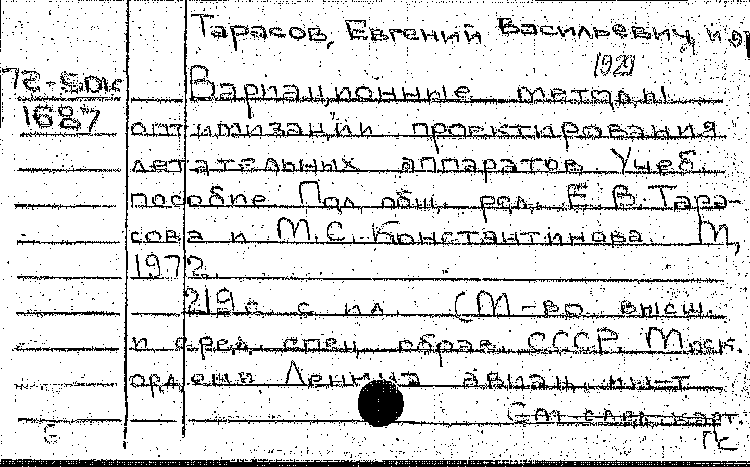 Тарасов, Евгений Васильевич, и др
1929
Вариационные методы
1687
оптимизации проектирования
летательных аппаратов. Учеб.
пособие. Под общ. ред. Е. В. Тара-
сова и М. С. Константинова. М.,
1972.
219 с. с ил. (М-во высш.
и сред. спец. образ. СССР. Моск.
ордена Ленина авиац. ин-т
См след. карт.